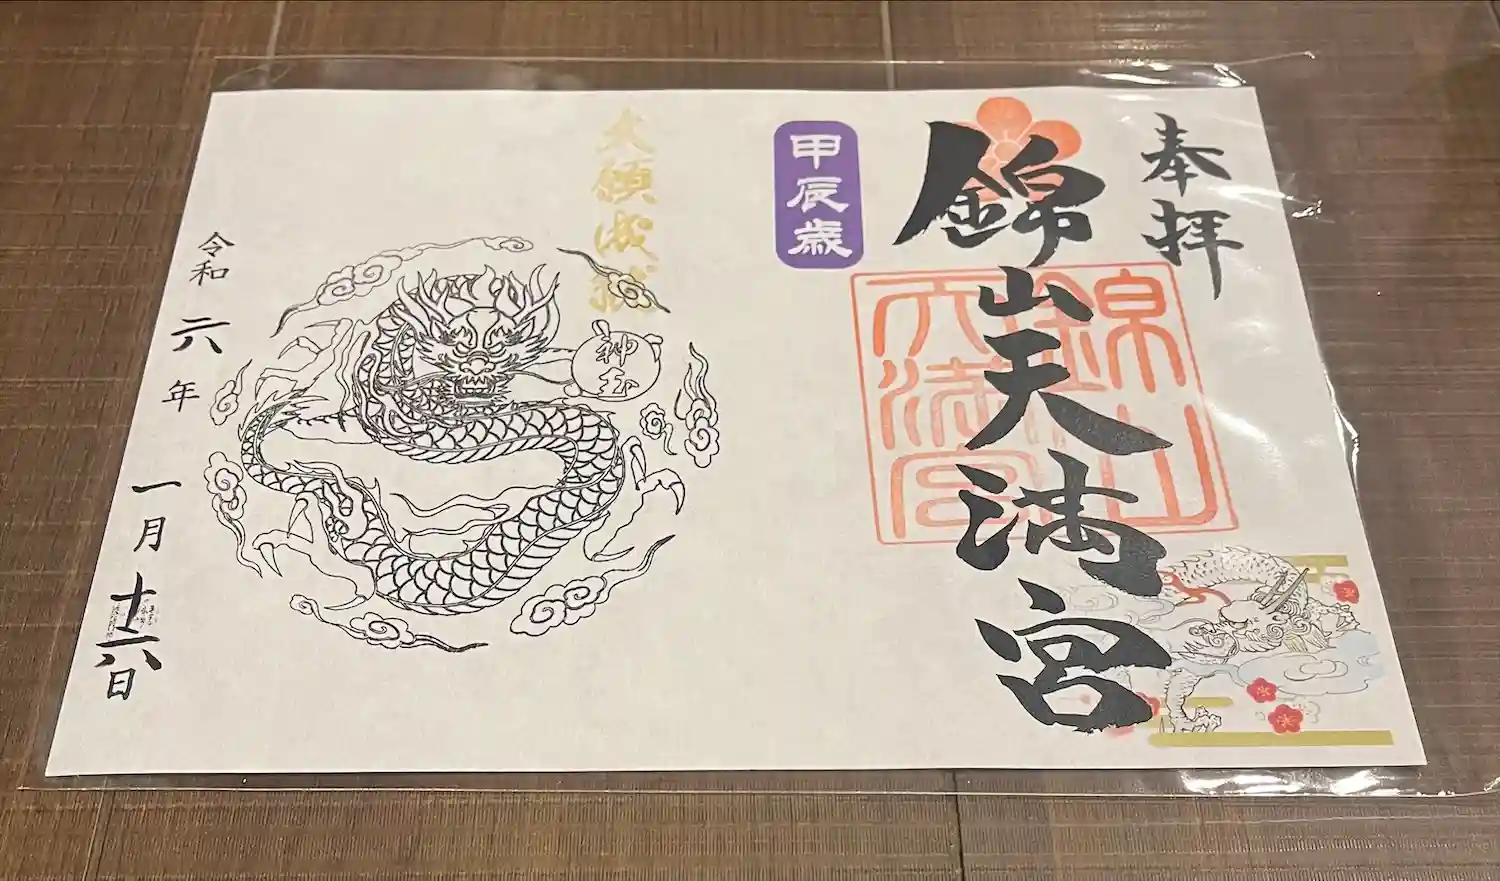 奉拝
錦山天満宮
錦山
天満宮
甲辰歳
大願成就
神玉
令和六年一月十六日